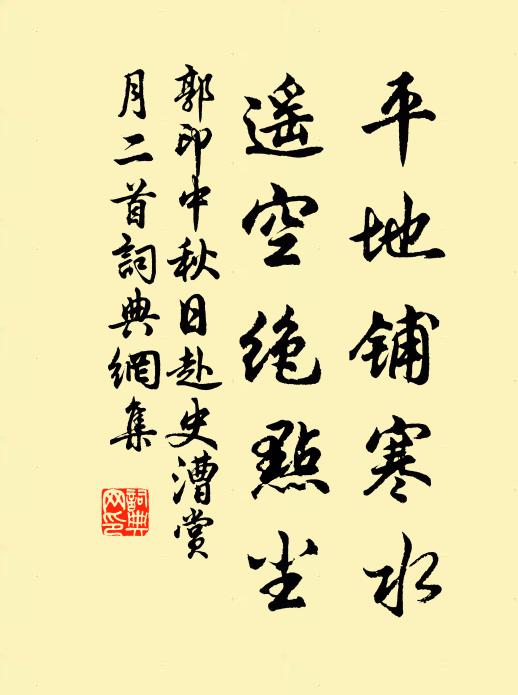 平地铺寒水
遥空绝點尘
郭印中秋日赴史漕赏
月二首詞典網集
詞典网印